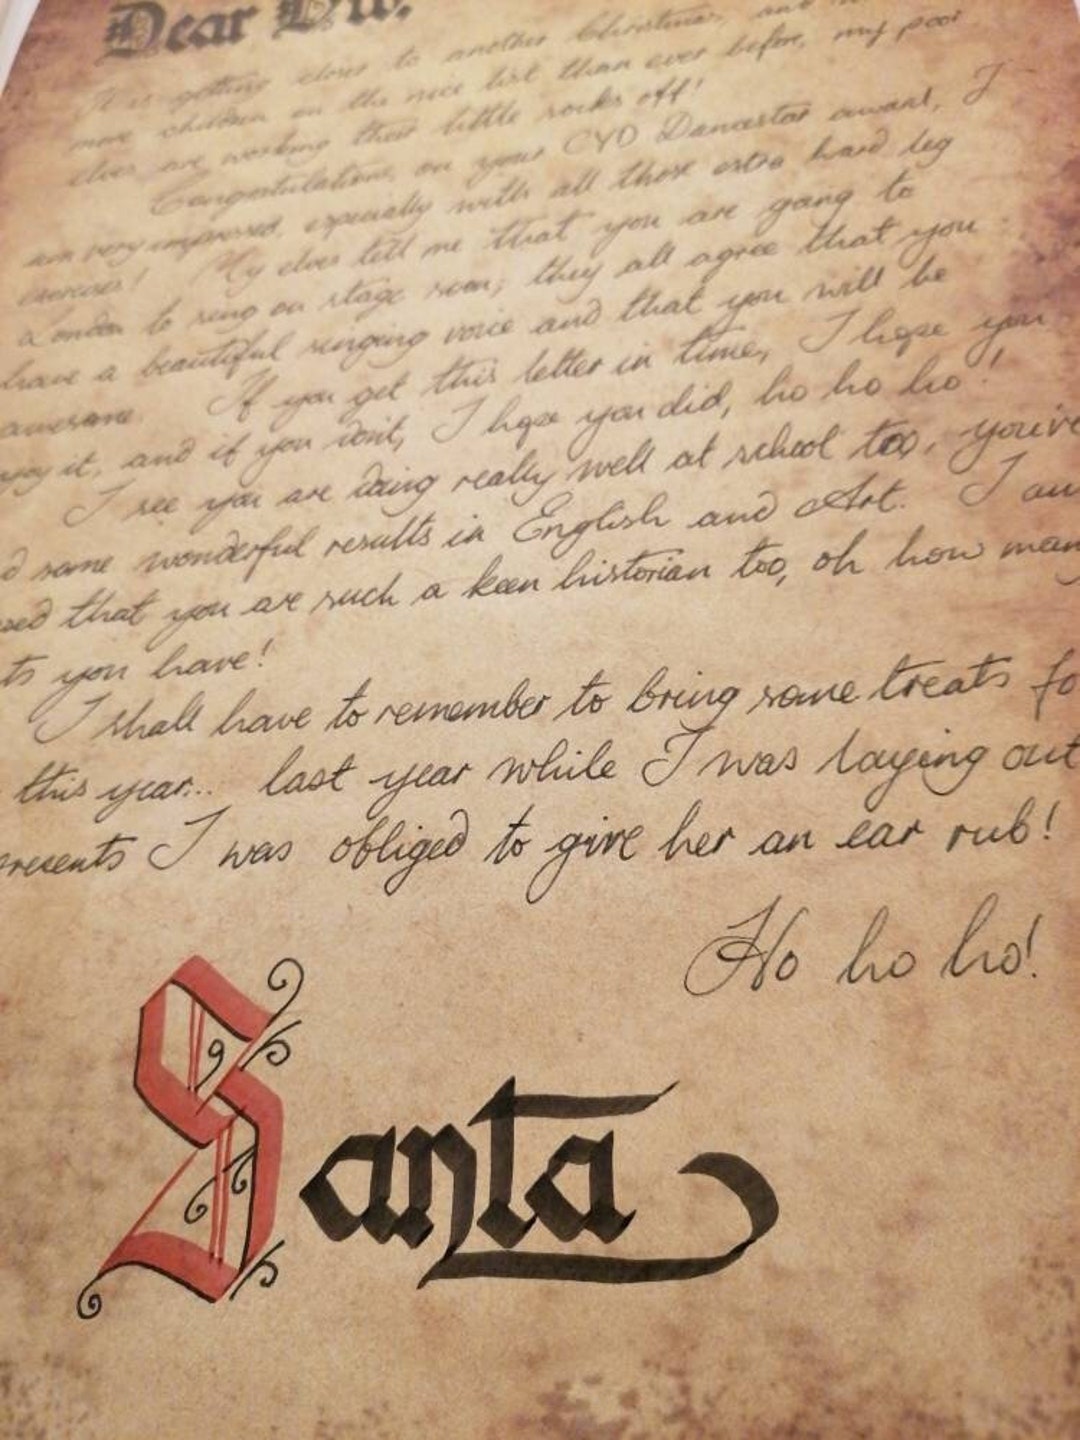 Dear
It is getting closer to another Christmas, and
more children on the nice list than ever before, my poor
elves are working their little socks off!
Congratulations, on your CYD Dancestar award, I
am very impressed, especially with all those extra hard leg
exercises! My elves tell me that you are going to
London to sing on stage soon; they all agree that you
have a beautiful singing voice and that you will be
awesome. If you get this letter in time, I hope you
it, and if you don't, I hope you did, ho ho ho!
I see you are doing really well at school too, you've
some wonderful results in English and Art. I am
that you are such a keen historian too, oh how many
you have!
I shall have to remember to bring some treats fo
this year... last year while I was laying out
presents I was obliged to give her an ear rub!
Ho ho ho!
Santa